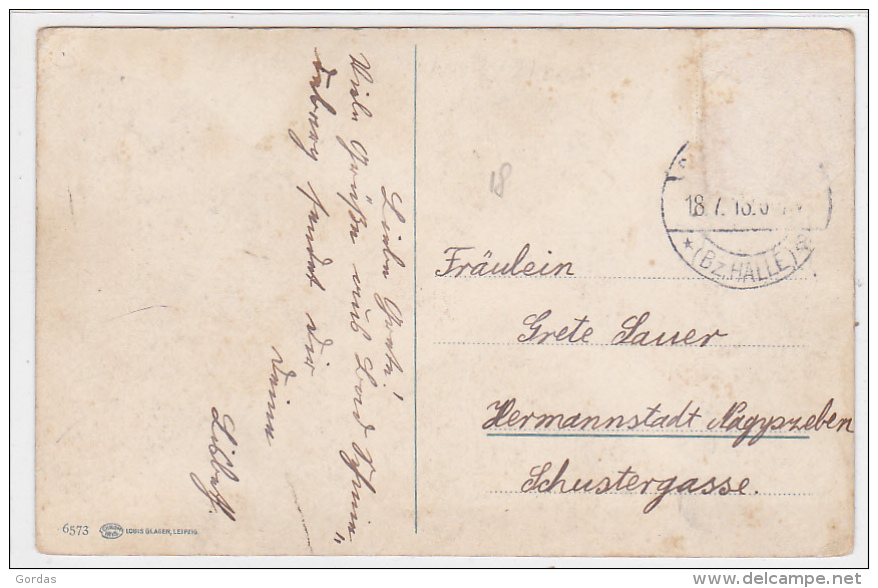 Liebe Grete!
Viele Grüße aus Bad Schmie„
deberg sendet dir
deine
Lisbeth.
18
18.7.18.
* (BZ.HALLE)
Fräulein
Grete Sauer
Hermannstadt Nagyszeben
Schustergasse.
6573 LOUIS GLASER, LEIPZIG.
Gordas
delcampe.net